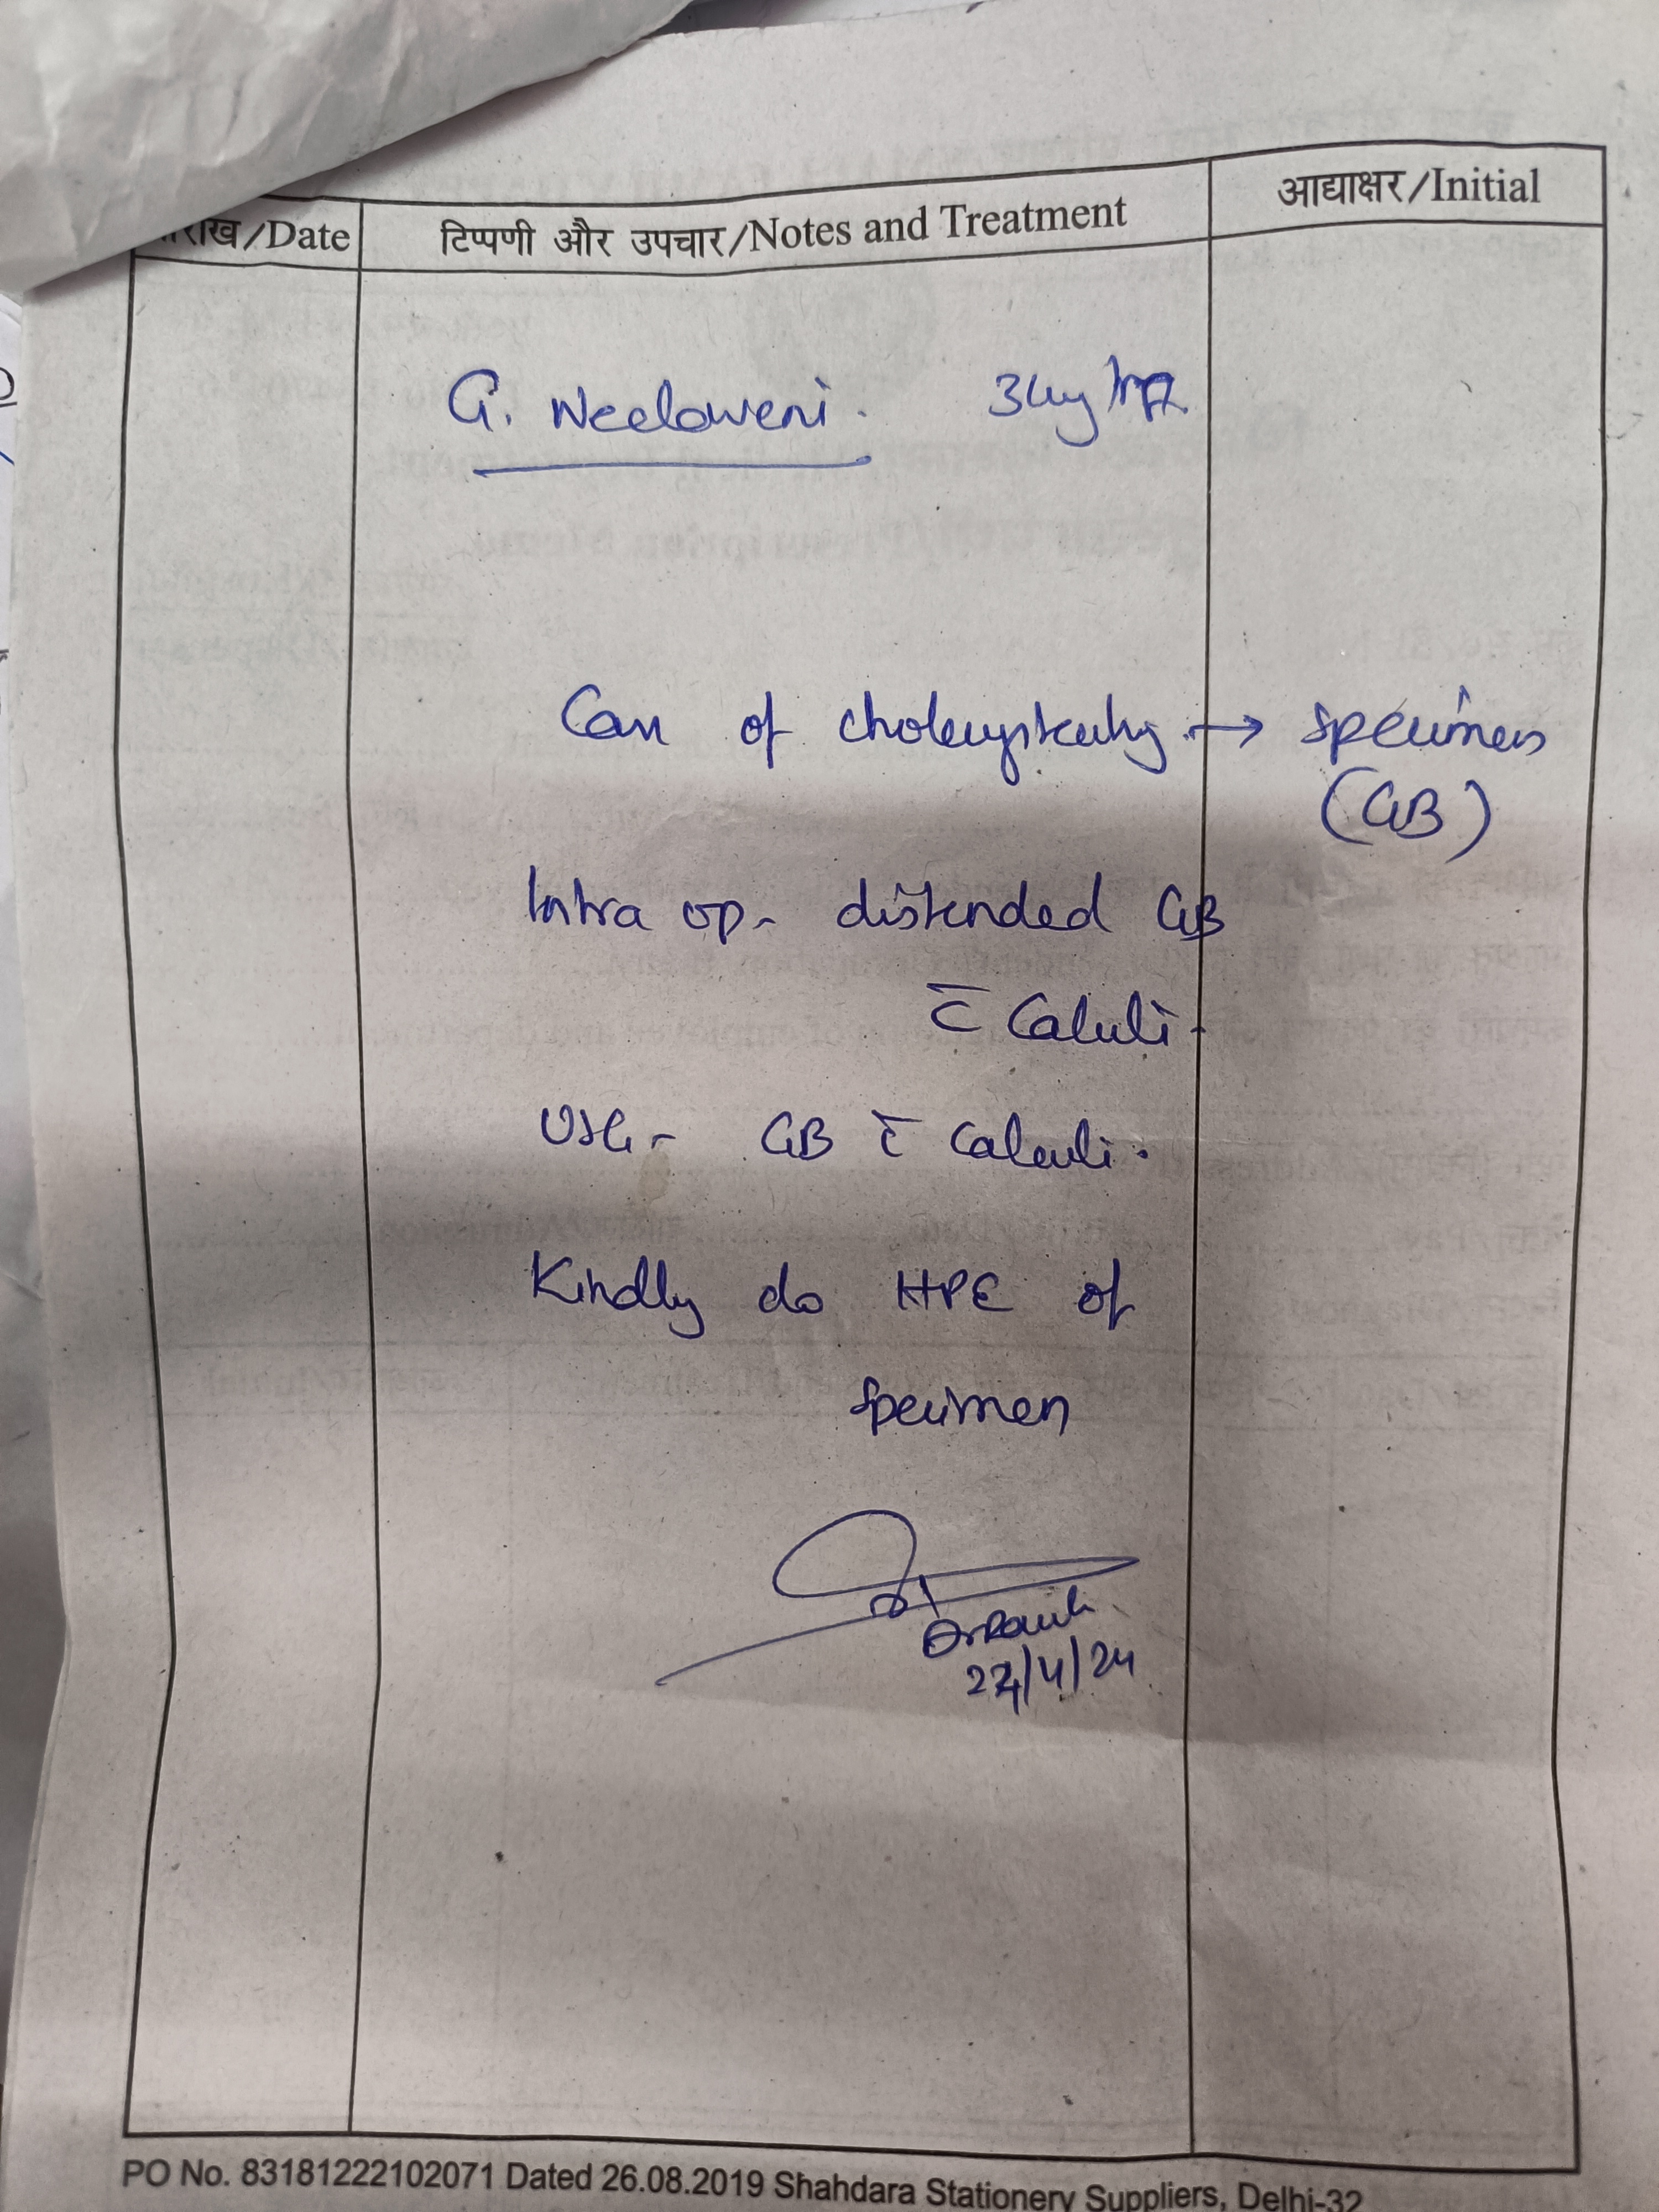 /Date टिप्पणी और उपचार/Notes and Treatment आद्याक्षर/Initial
G. Neelaveni.
Case of cholecystectomy → specimen
(GB)
Intra op - distended GB
c̄ Calculi.
USG - GB c̄ Calculi.
Kindly do HPE of
specimen
27/4/24
PO No. 83181222102071 Dated 26.08.2019 Shahdara Stationery Suppliers, Delhi-32